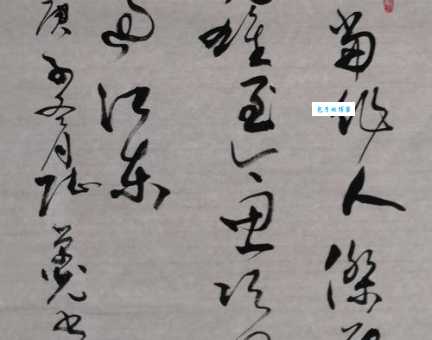 當作人傑
雄至今思項
過江東
庚子冬月
書